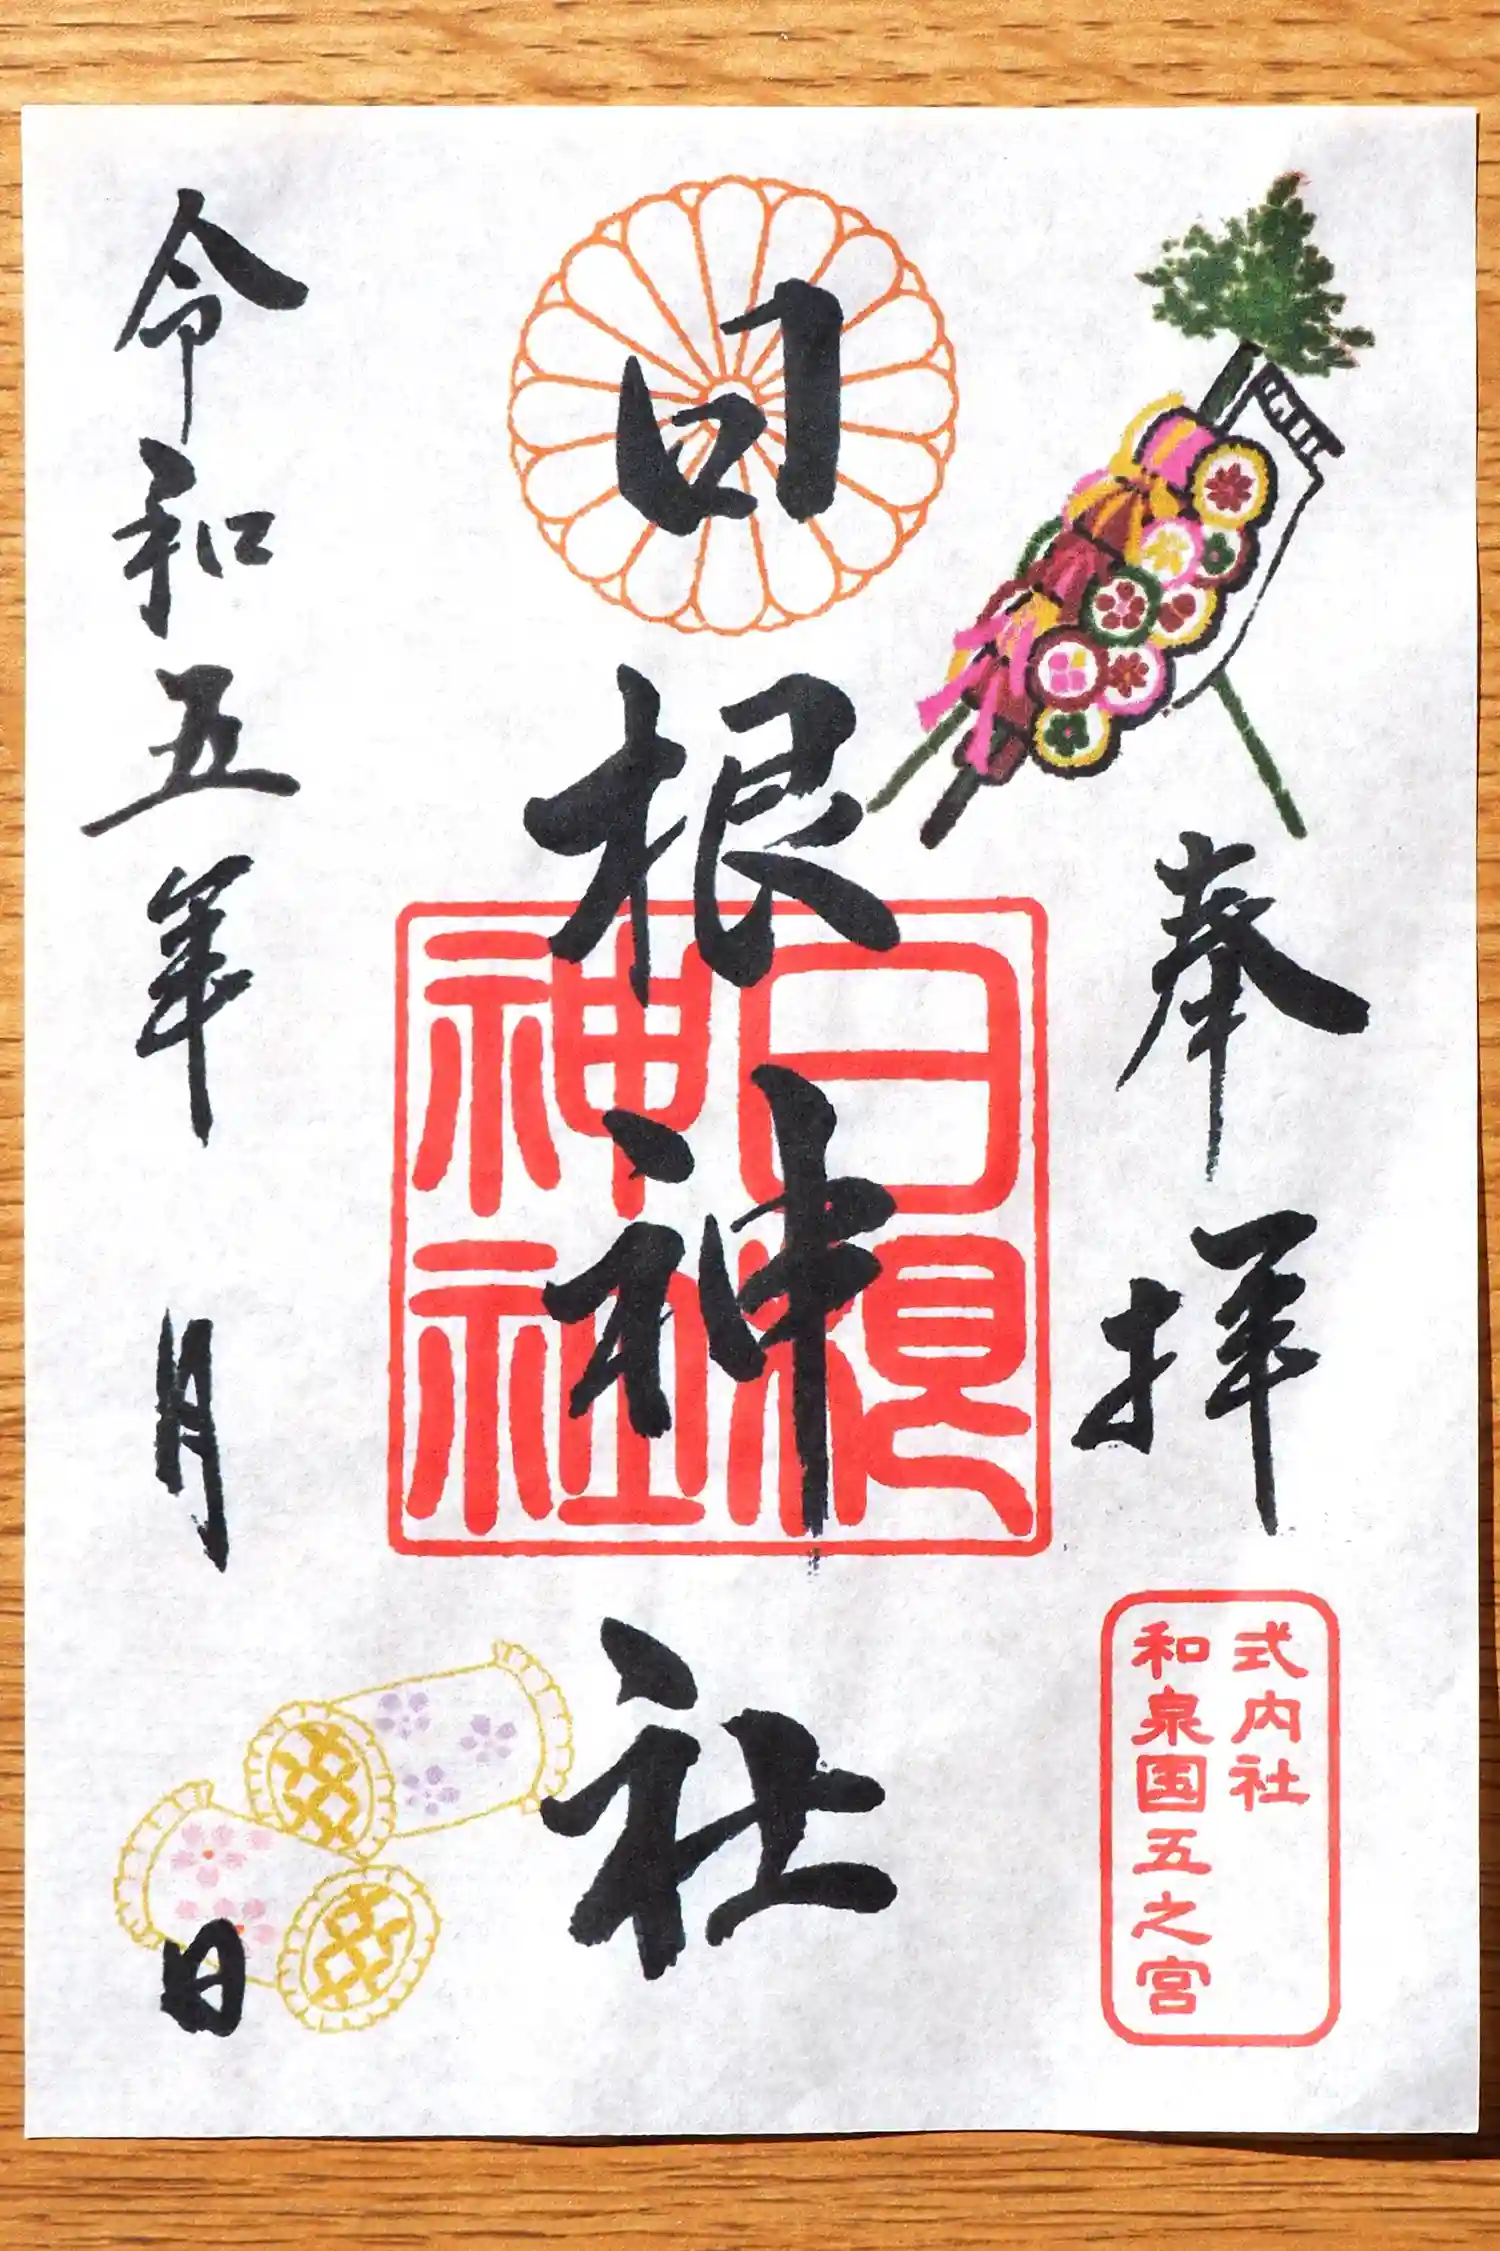 奉拝
式内社
和泉国五之宮
日根神社
日根
神社
令和五年 月 日